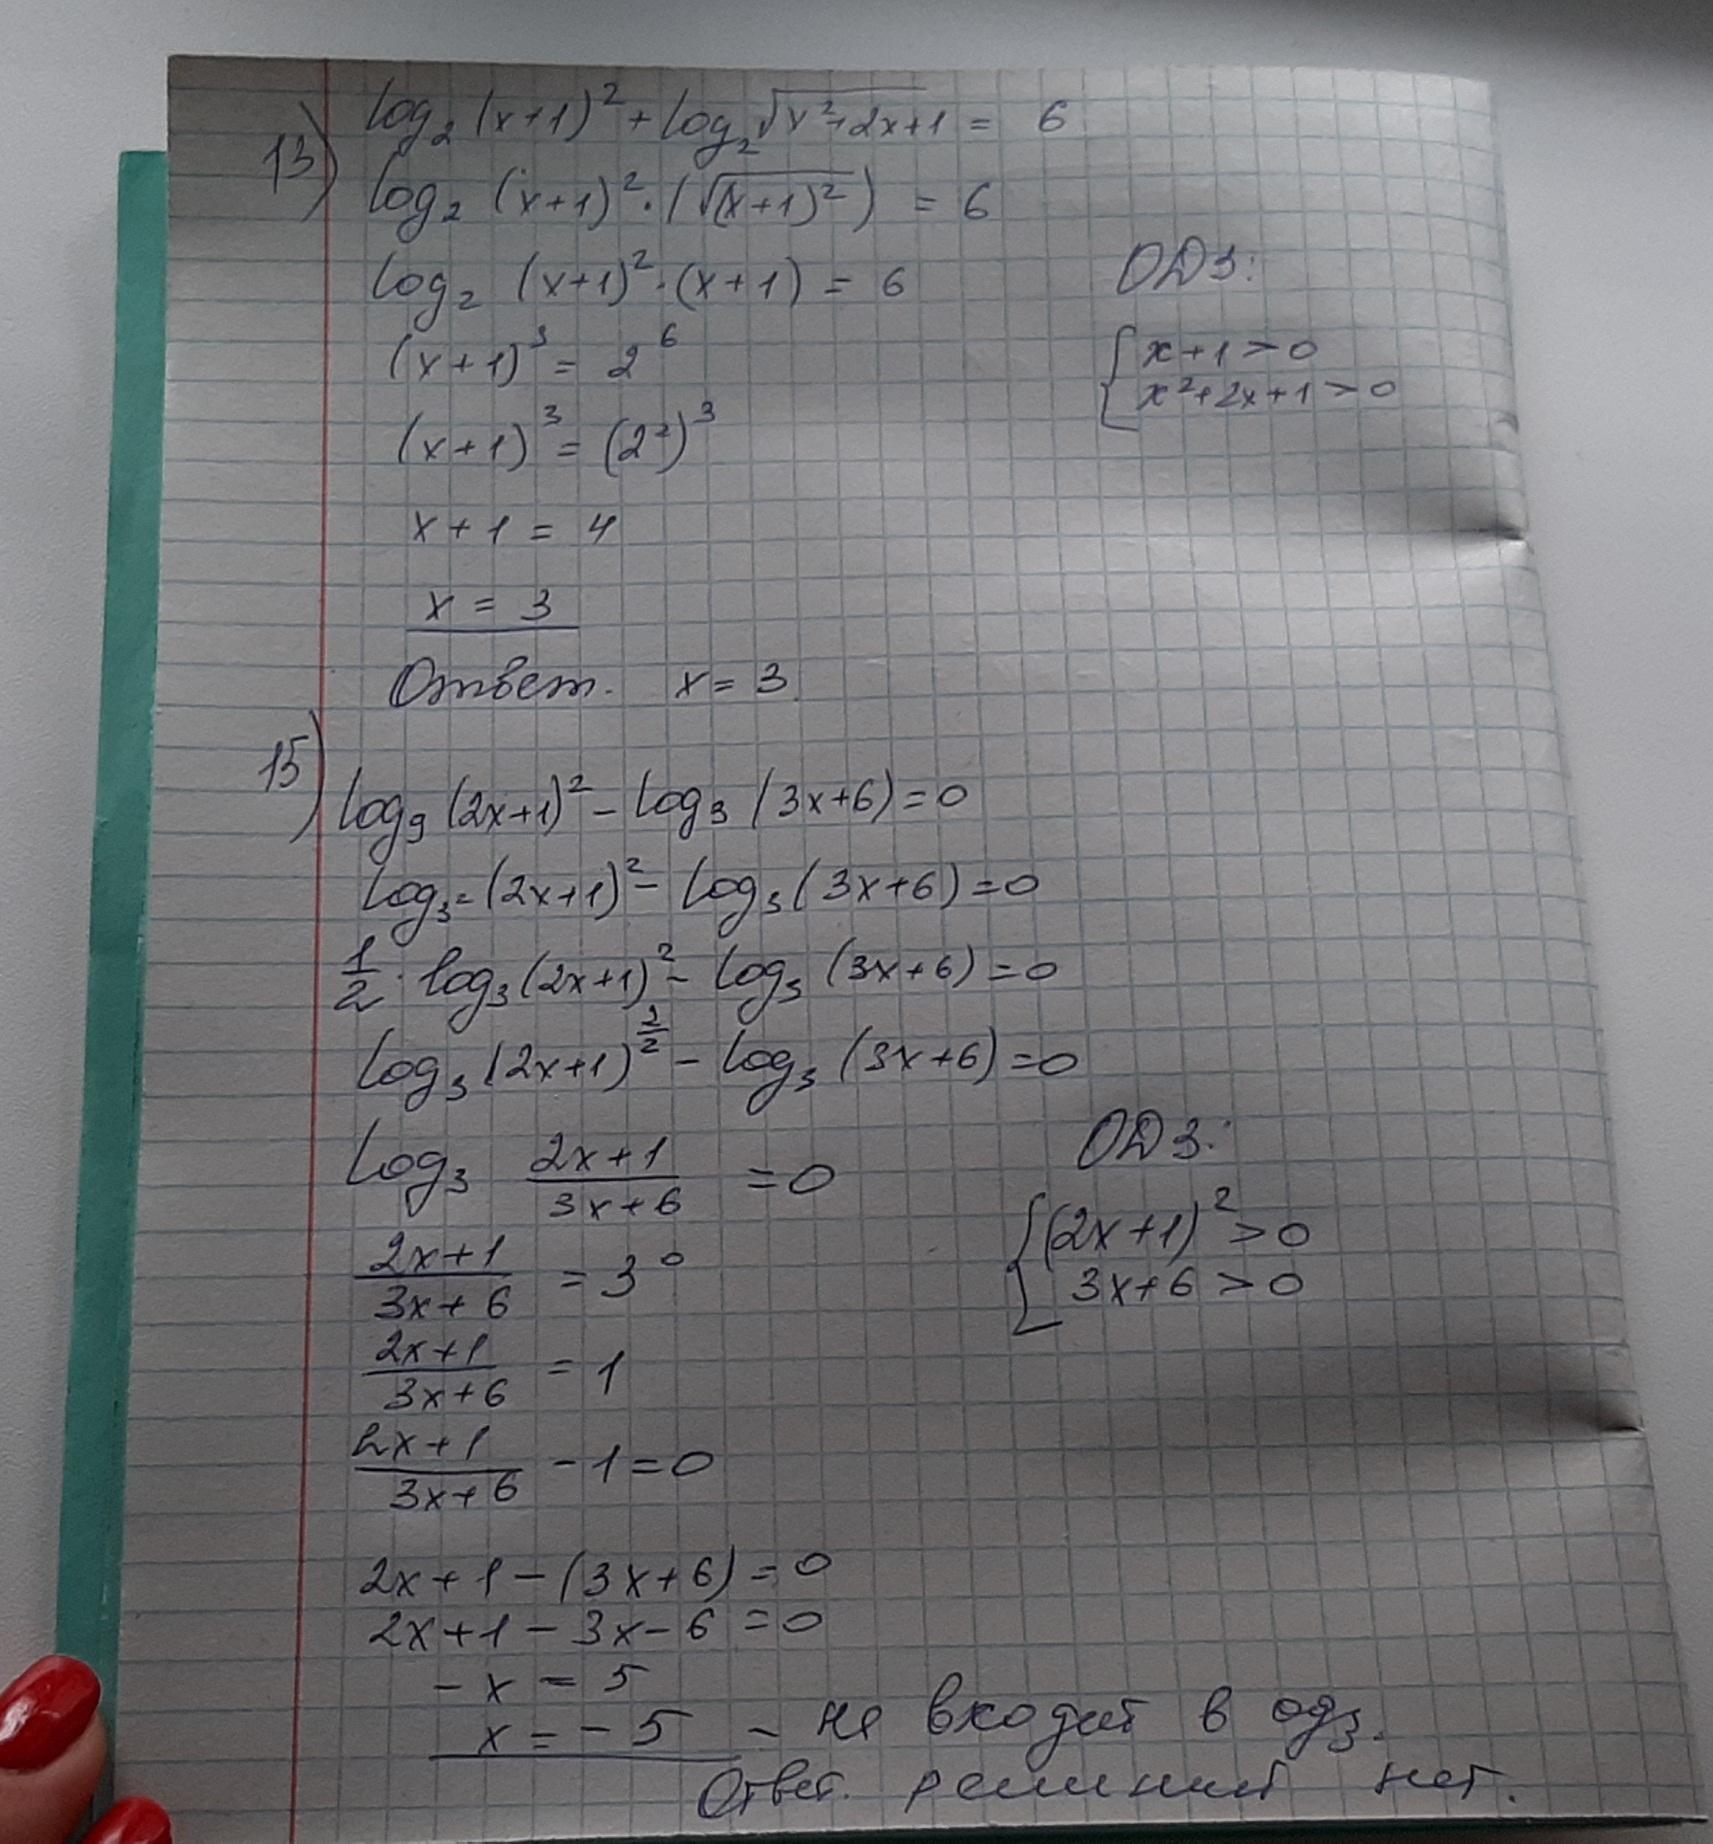 13) log₂ (x+1)² + log₂ √x²+2x+1 = 6
log₂ (x+1)² · (√(x+1)²) = 6
log₂ (x+1)² · (x+1) = 6
ОДЗ:
(x+1)³ = 2⁶
{ x+1 > 0
x²+2x+1 > 0
(x+1)³ = (2²)³
x+1 = 4
x = 3
Ответ. x = 3
15) log₉ (2x+1)² - log₃ (3x+6) = 0
log₃² (2x+1)² - log₃ (3x+6) = 0
1/2 · log₃ (2x+1)² - log₃ (3x+6) = 0
log₃ (2x+1)^(2/2) - log₃ (3x+6) = 0
log₃ (2x+1)/(3x+6) = 0
ОДЗ:
(2x+1)/(3x+6) = 3⁰
{ (2x+1)² > 0
3x+6 > 0
(2x+1)/(3x+6) = 1
(2x+1)/(3x+6) - 1 = 0
2x+1-(3x+6) = 0
2x+1-3x-6 = 0
-x = 5
x = -5 - не входит в одз.
Ответ. решений нет.